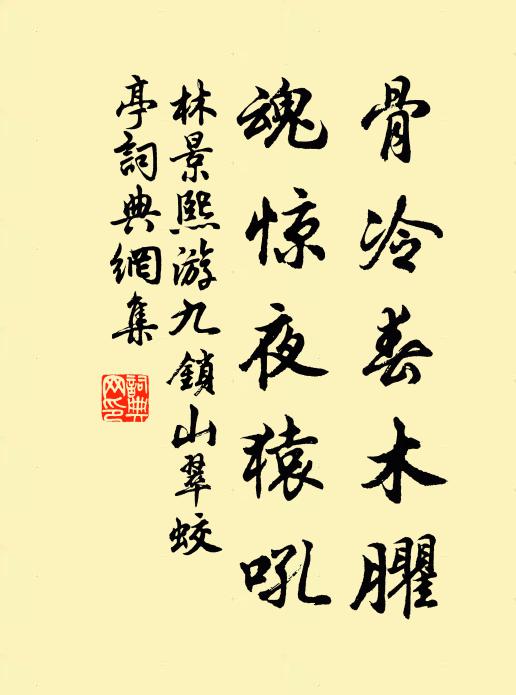 骨冷春木臞
魂惊夜猿吼
林景熙游九鎖山翠蛟
亭詞典網集
詞典网印